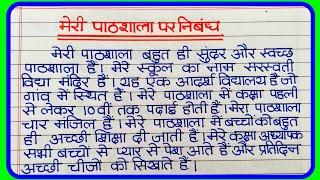 मेरी पाठशाला पर निबंध
मेरी पाठशाला बहुत ही सुंदर और स्वच्छ
पाठशाला है। मेरे स्कूल का नाम सरस्वती
विद्या मंदिर है। यह एक आदर्श विद्यालय है जो
गांव में स्थित है। मेरे पाठशाला में कक्षा पहली
से लेकर 10वीं तक पढ़ाई होती है। मेरा पाठशाला
चार मंजिल है। मेरे पाठशाला में बच्चों को बहुत
ही अच्छी शिक्षा दी जाती है। मेरे कक्षा अध्यापक
सभी बच्चों से प्यार से पेश आते हैं और प्रतिदिन
अच्छी चीजों को सिखाते हैं।